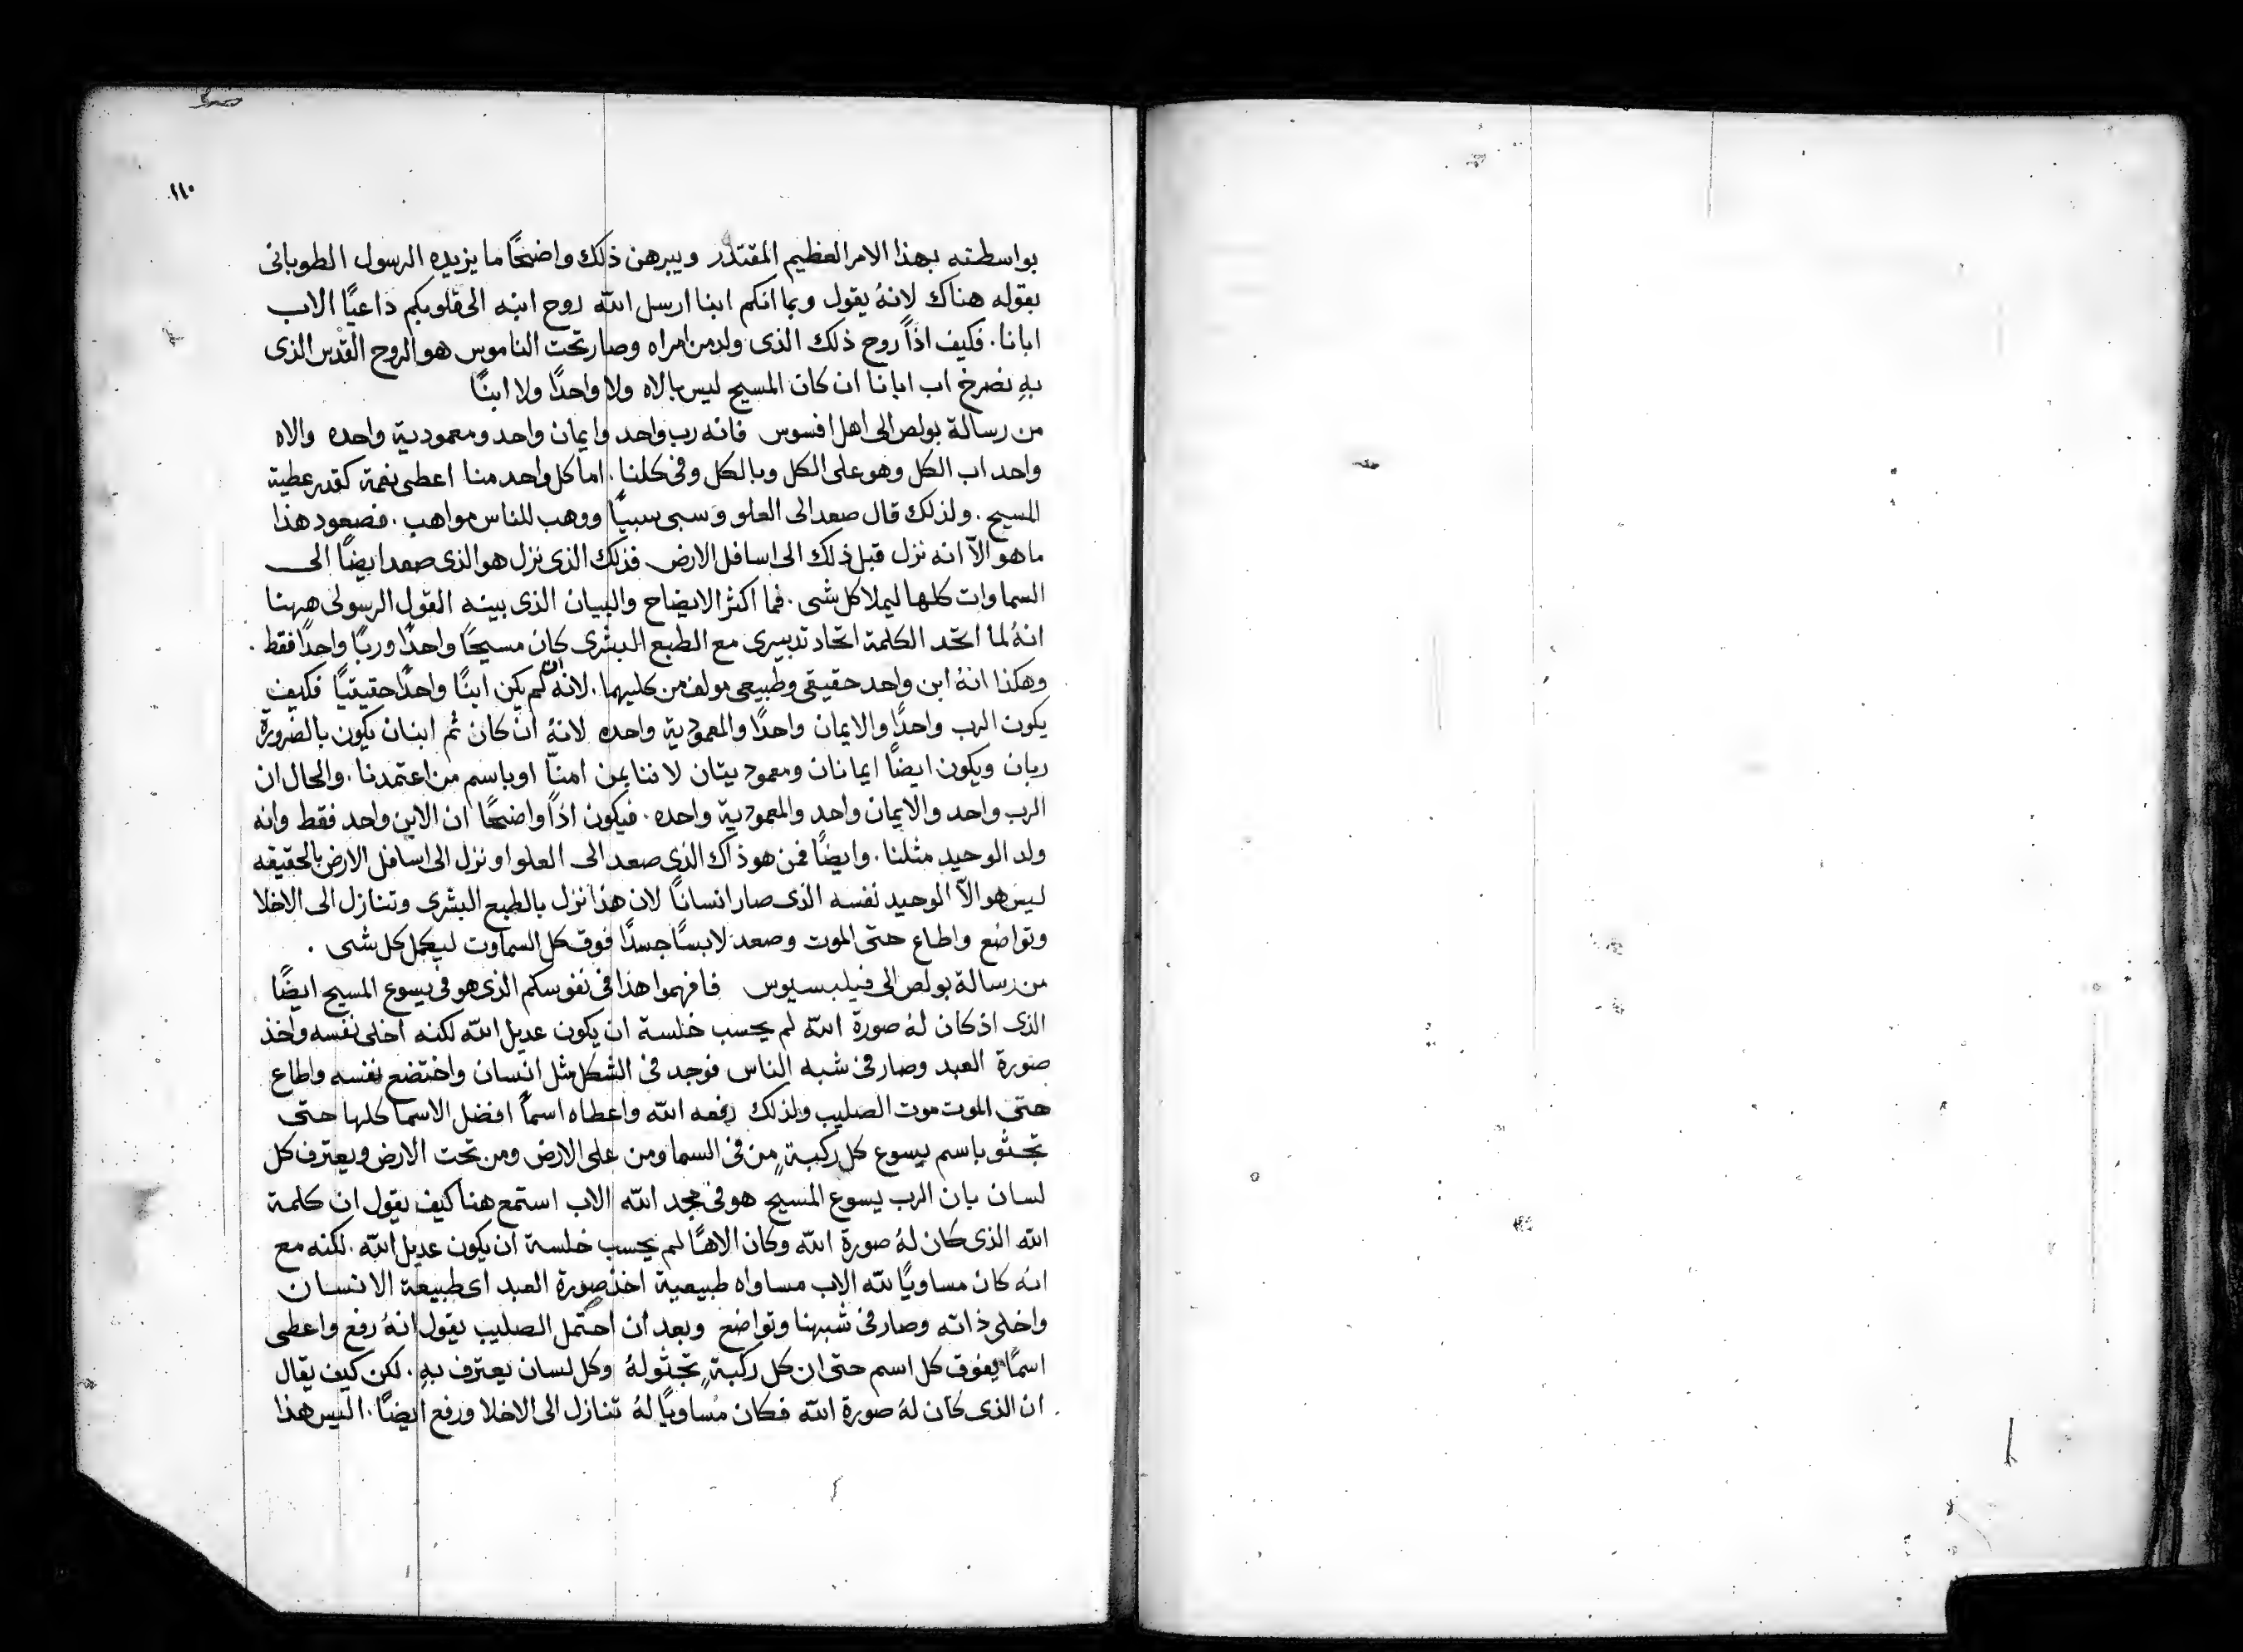 ١١٠
بواسطته بهذا الامر العظيم المقتدر ويبرهن ذلك واضحًا ما يزيده الرسول الطوبانى
بقوله هناك لانهُ يقول وبما انكم ابنا ارسل الله روح ابنه الى قلوبكم داعيًا الاب
ابانا. فكيف اذاً روح ذلك الذى ولد من امراه وصار تحت الناموس هو الروح القدس الذى
بهِ نصرخ اب ابانا ان كان المسيح ليس بالاه ولا واحدًا ولا ابنًا
من رسالة بولص الى اهل افسوس فانه رب واحد وايمان واحد ومعمودية واحده والاه
واحد اب الكل وهو على الكل وبالكل وفى كلنا. اما كل واحد منا اعطى نعمة كقدر عطية
المسيح. ولذلك قال صعد الى العلو وسبى سبيًا ووهب للناس مواهب. فصعود هذا
ما هو الّا انه نزل قبل ذلك الى اسافل الارض فذلك الذى نزل هو الذى صعد ايضًا الى
السماوات كلها ليملا كل شى. فما اكثر الايضاح والبيان الذى بينه القول الرسولى ههنا
انهُ لما اتحد الكلمة اتحاد تدبيرى مع الطبع البشرى كان مسيحًا واحدًا وربًا واحدًا فقط.
وهكذا انهُ ابن واحد حقيقى وطبيعى مولف من كليهما. لانه ان لم يكن ابنًا واحدًا حقيقيًا فكيف
يكون الرب واحدًا والايمان واحدًا والمعمودية واحده لانهُ ان كان ثم ابنان يكون بالضرورة
ربان ويكون ايضًا ايمانان ومعموديتان لاننا بمن امنّا او باسم من اعتمدنا. والحال ان
الرب واحد والايمان واحد والمعمودية واحده. فيكون اذاً واضحًا ان الابن واحد فقط وانه
ولد الوحيد مثلنا. وايضًا فمن هو ذاك الذى صعد الى العلو او نزل الى اسافل الارض بالحقيقه
ليس هو الّا الوحيد نفسه الذى صار انسانًا لان هذا نزل بالطبع البشرى وتنازل الى الاخلا
وتواضع واطاع حتى الموت وصعد لابسًا جسدًا فوق كل السماوت ليكمل كل شى.
من رسالة بولص الى فيلبسيوس فافهموا هذا فى نفوسكم الذى هو فى يسوع المسيح ايضًا
الذى اذ كان لهُ صورة الله لم يحسب خلسة ان يكون عديل الله لكنه اخلى نفسه واخذ
صورة العبد وصار فى شبه الناس فوجد فى الشكل مثل انسان واختضع نفسه واطاع
حتى الموت موت الصليب ولذلك رفعه الله واعطاه اسمًا افضل الاسما كلها حتى
تجثو باسم يسوع كل ركبةٍ من فى السما ومن على الارض ومن تحت الارض ويعترف كل
لسان بان الرب يسوع المسيح هو فى مجد الله الاب استمع هنا كيف يقول ان كلمة
الله الذى كان لهُ صورة الله وكان الاهًا لم يحسب خلسة ان يكون عديل الله. لكنه مع
انه كان مساويًا لله الاب مساواه طبيعية اخذ صورة العبد اى طبيعة الانسان
واخلى ذاته وصار فى شبهنا وتواضع وبعد ان احتمل الصليب يقول انهُ رفع واعطى
اسمًا يفوق كل اسم حتى ان كل ركبةٍ تجثو لهُ وكل لسان يعترف بهِ. لكن كيف يقال
ان الذى كان لهُ صورة الله فكان مُساويًا لهُ تنازل الى الاخلا ورفع ايضًا. اليس هذا